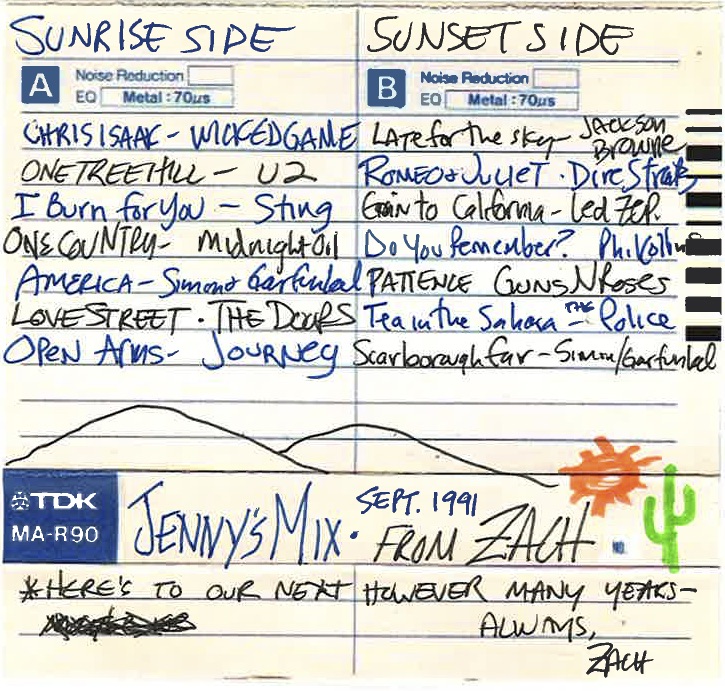 SUNRISE SIDE
A Noise Reduction
EQ Metal : 70μs
CHRIS ISAAK - WICKED GAME
ONE TREE HILL - U2
I Burn for You - Sting
ONE COUNTRY - Midnight Oil
AMERICA - Simon & Garfunkel
LOVE STREET · THE DOORS
OPEN Arms - JOURNEY
SUNSET SIDE
B Noise Reduction
EQ Metal : 70μs
LATE for the sky - JACKSON BROWNE
ROMEO & JULIET · Dire Straits
Goin to California - Led ZEP.
Do You Remember? Phil Collins
PATIENCE GUNS N ROSES
Tea in the Sahara - THE Police
Scarborough Fair - Simon/Garfunkel
TDK
MA-R90
JENNY'S MIX · SEPT. 1991
FROM ZACH
NO.
*HERE'S TO OUR NEXT HOWEVER MANY YEARS -
ALWAYS,
ZACH